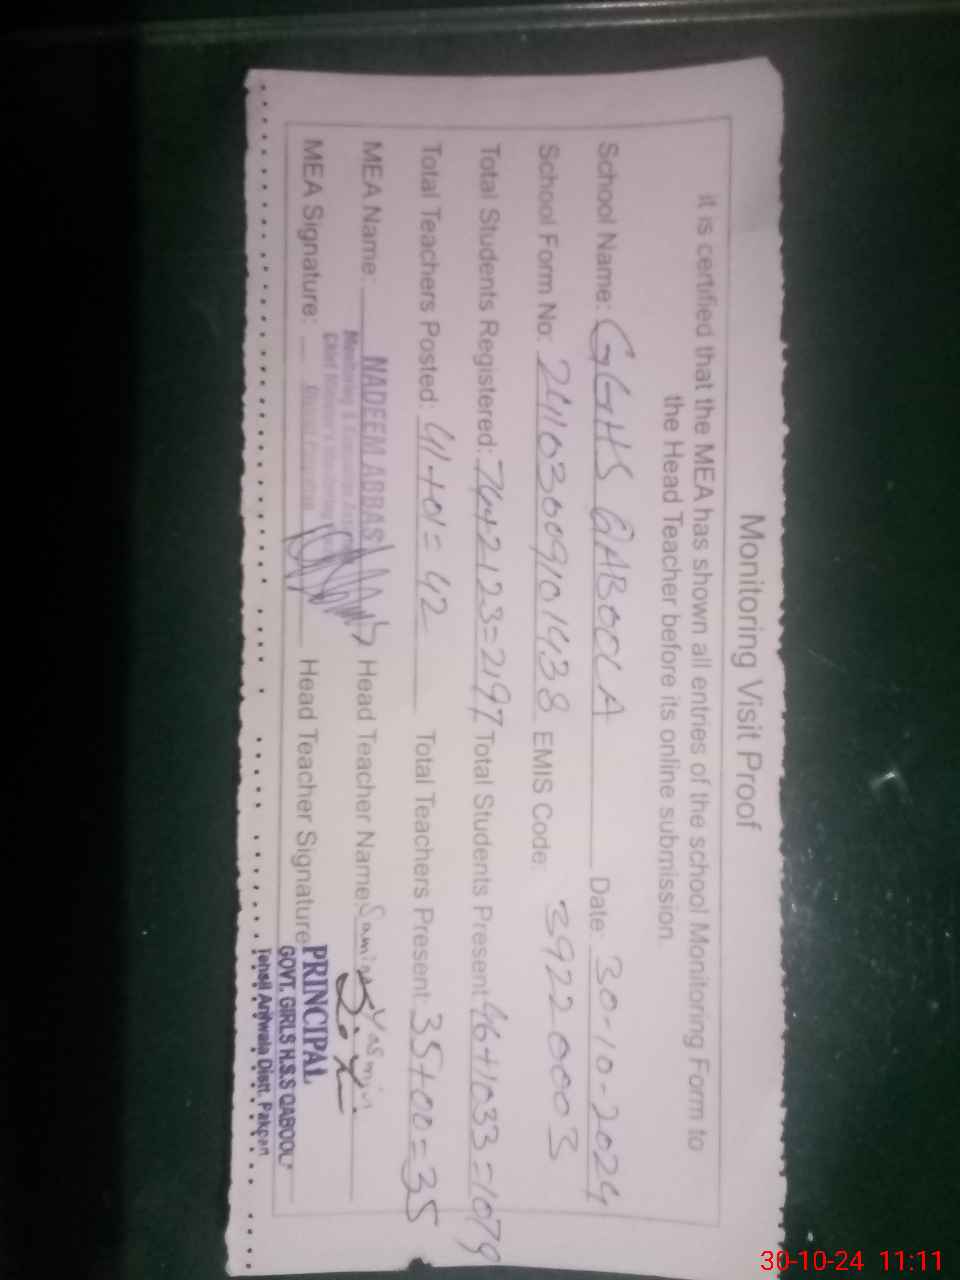 Monitoring Visit Proof
it is certified that the MEA has shown all entries of the school Monitoring Form to
the Head Teacher before its online submission.
School Name: GGHS QABOOLA Date: 30-10-2024
School Form No: 241103009101438 EMIS Code: 39220003
Total Students Registered: 74+2123=2197 Total Students Present: 46+1033=1079
Total Teachers Posted: 41+01=42 Total Teachers Present: 35+00=35
MEA Name: NADEEM ABBAS Head Teacher Name: Samina Yasmin
Monitoring & Evaluation
Chief Minister's Monitoring
MEA Signature: Head Teacher Signature
PRINCIPAL
GOVT. GIRLS H.S.S QABOOL
Tehsil Arifwala Distt. Pakpatn
30-10-24 11:11